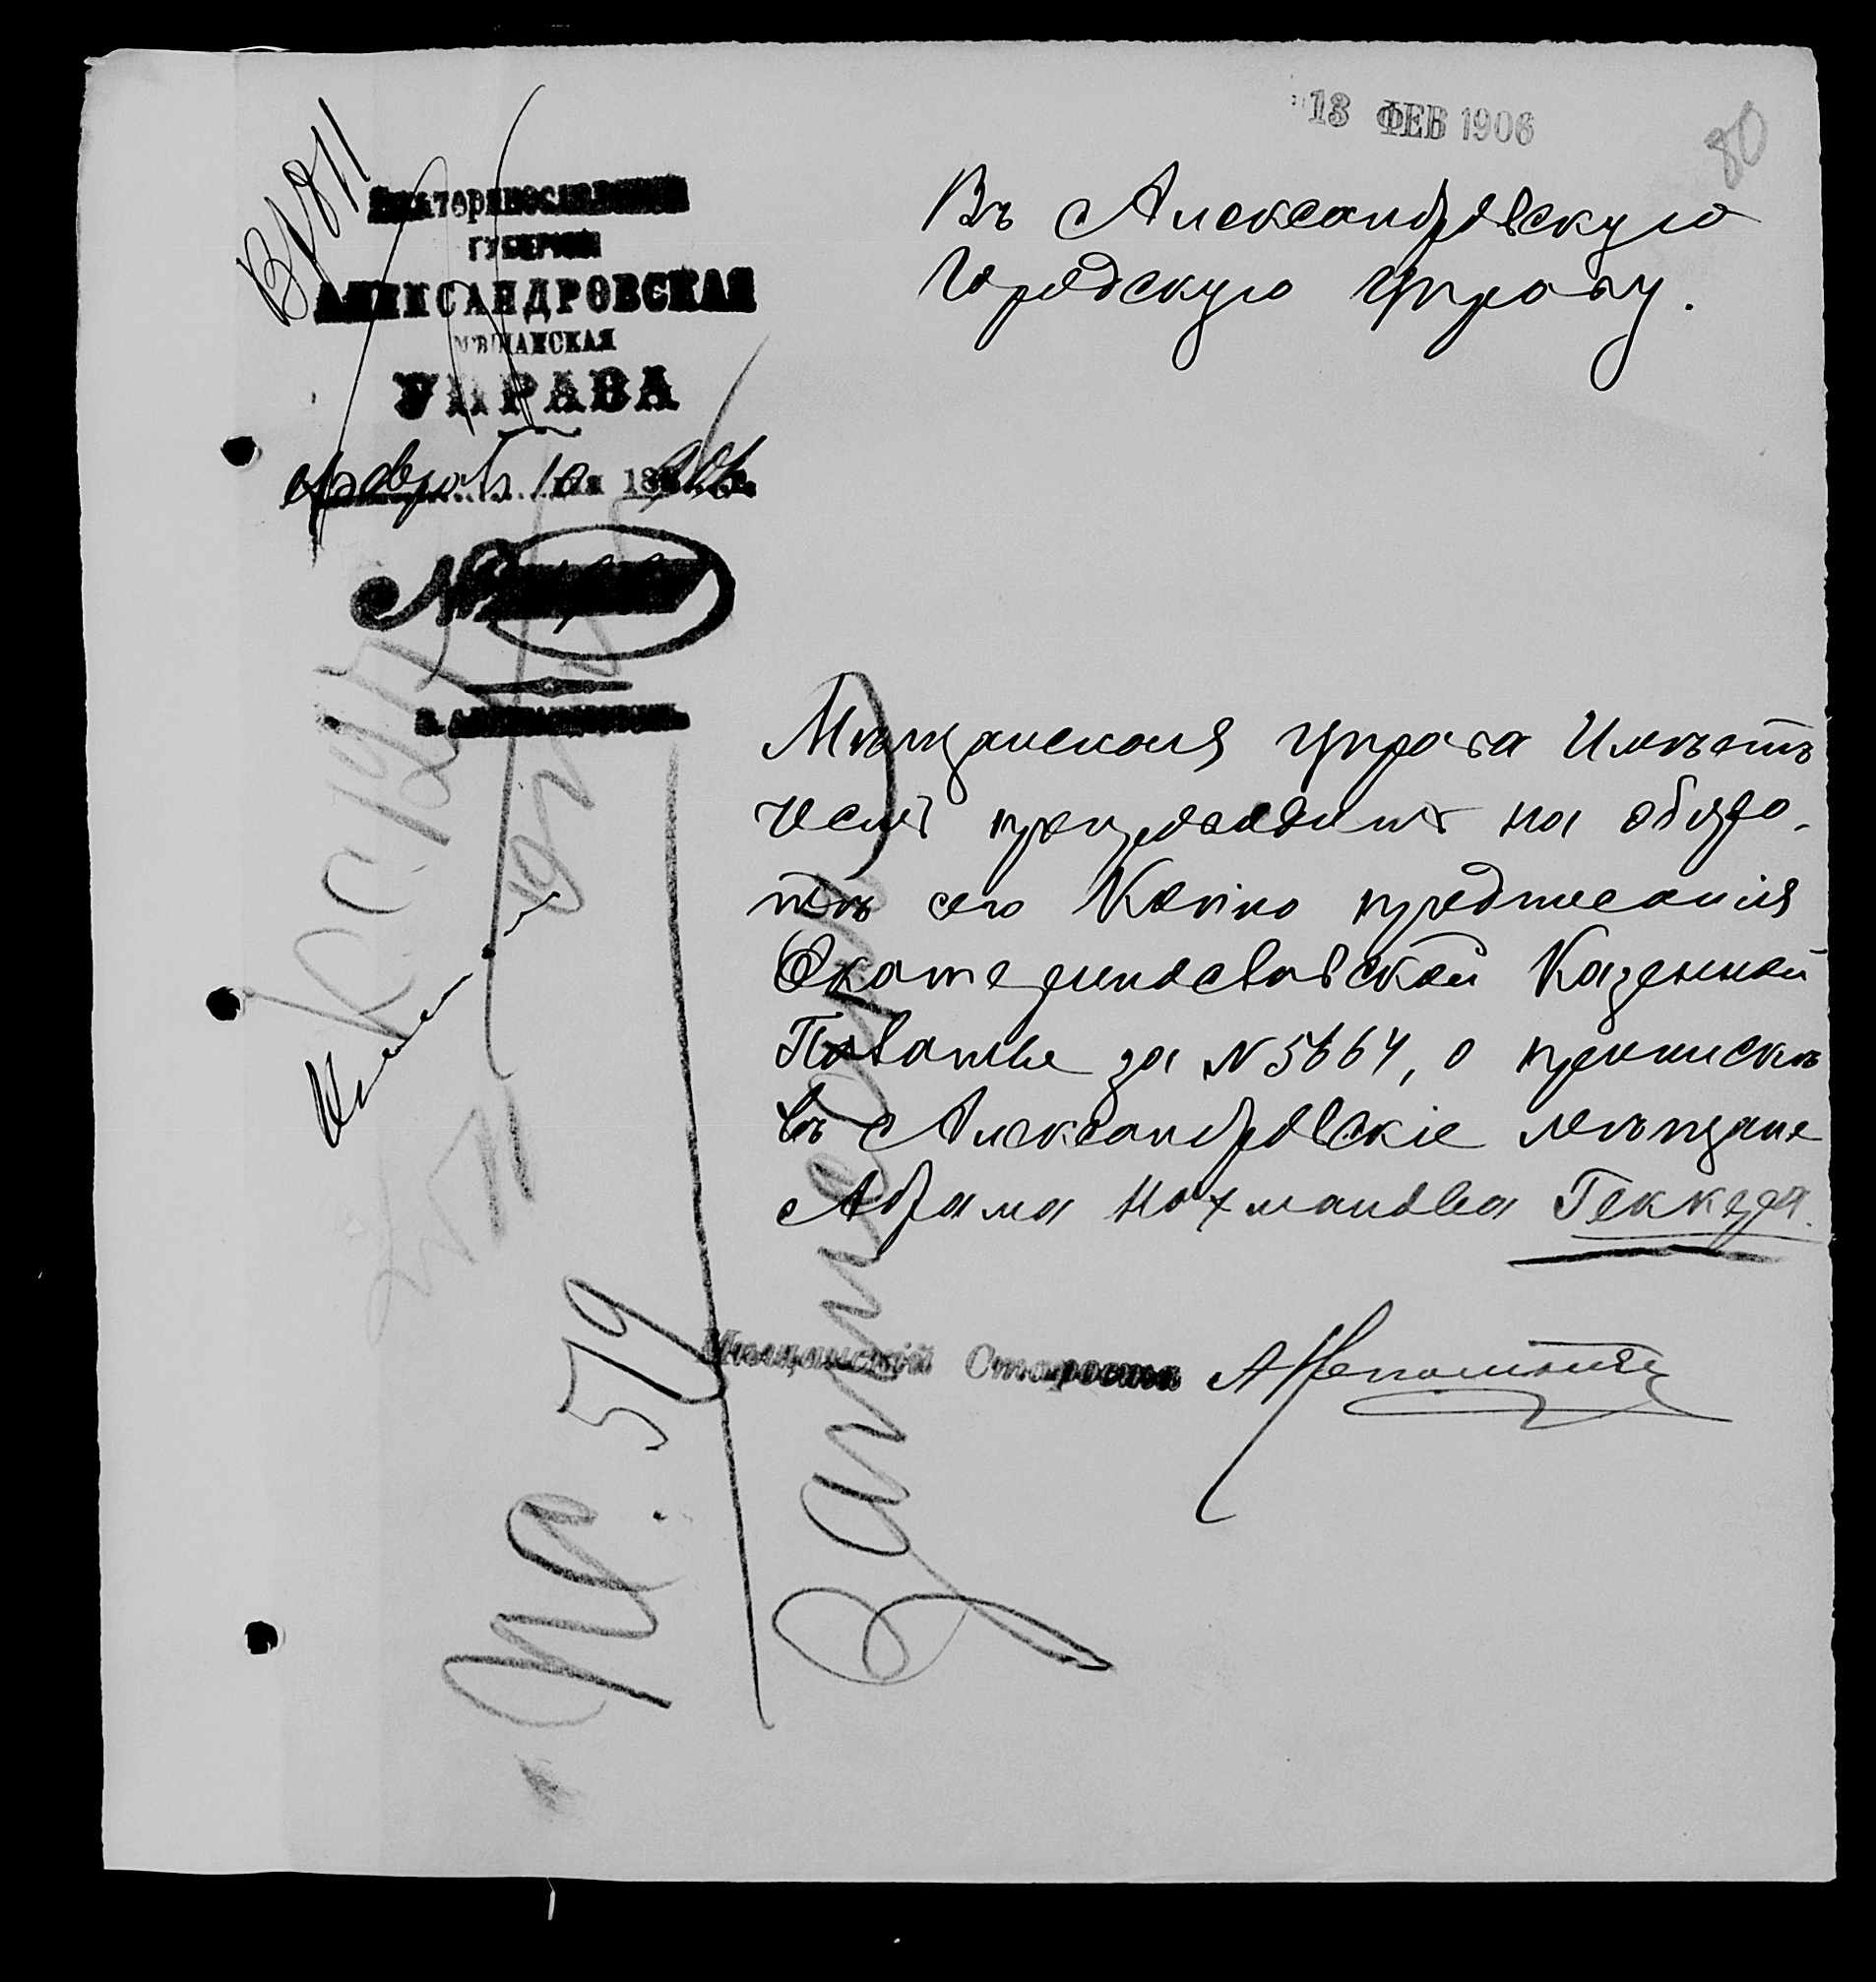 13 ФЕВ 1906
80
Вх 811
Екатеринославской
ГУБЕРНИИ
АЛЕКСАНДРОВСКАЯ
МѢЩАНСКАЯ
УПРАВА
Февраля 10 дня 1906
№
г. Александровскъ.
Въ Александровскую
Городскую Управу.
Мѣщанская Управа Имѣетъ
честь препроводить на оборо-
тѣ сего Копію предписанія
Екатеринославской Казенной
Палаты за №5664, о припискѣ
въ Александровскіе мѣщане
Абрама Нахманова Геккера.
Мѣщанскій Староста
пр. 59